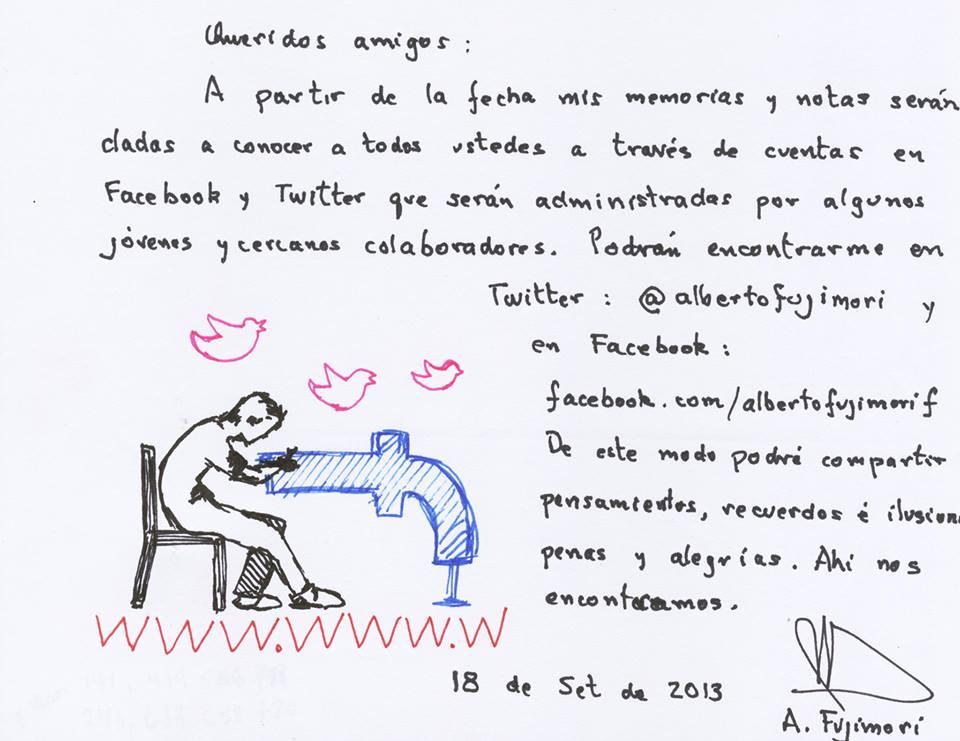 Queridos amigos:
A partir de la fecha mis memorias y notas serán
dadas a conocer a todos ustedes a través de cuentas en
Facebook y Twitter que serán administradas por algunos
jóvenes y cercanos colaboradores. Podrán encontrarme en
Twitter: @albertofujimori y
en Facebook:
facebook.com/albertofujimorif
De este modo podré compartir
pensamientos, recuerdos é ilusion
penas y alegrías. Ahí nos
encontramos.
WWW.WWW.W
18 de Set de 2013
A. Fujimori